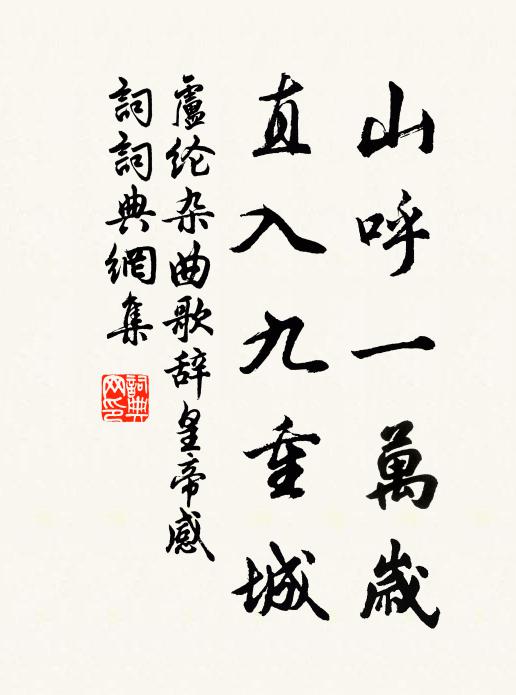 山呼一萬歲
直入九重城
盧纶杂曲歌辞皇帝感
詞詞典網集
詞典网印